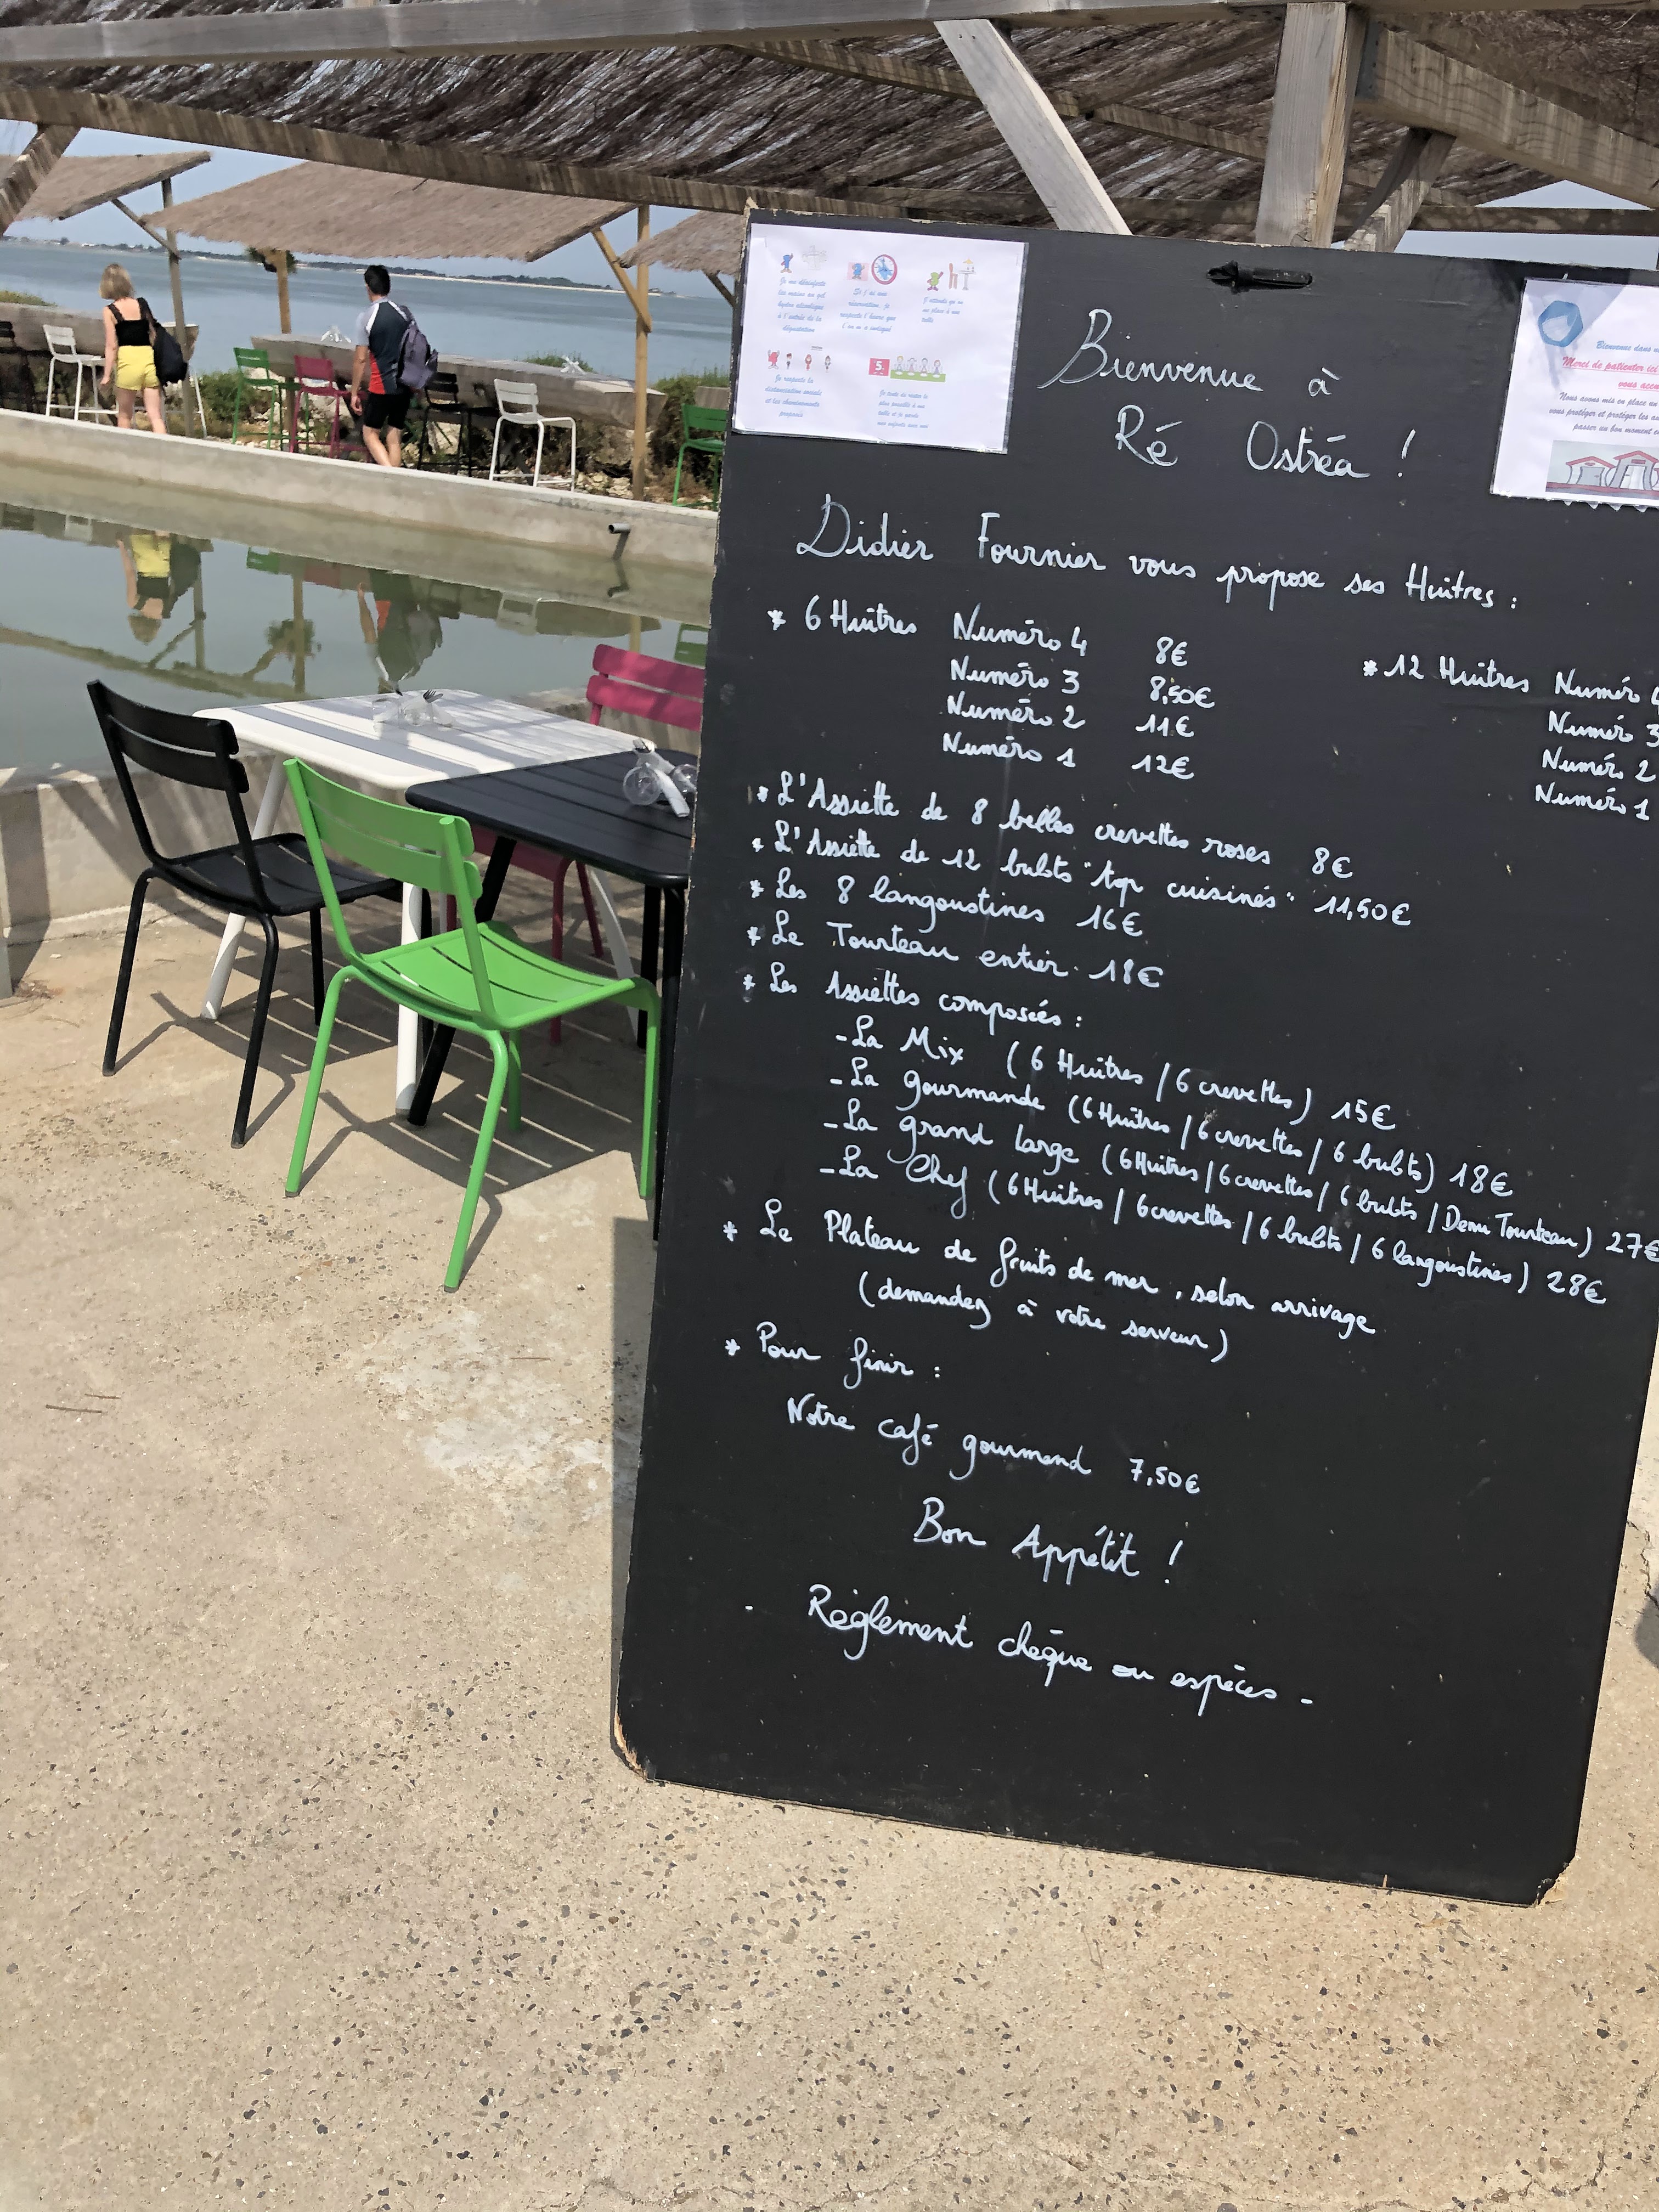 Bienvenue à
Ré Ostréa !
Didier Fournier vous propose ses Huîtres :
* 6 Huîtres Numéro 4 8€
Numéro 3 8,50€
Numéro 2 11€
Numéro 1 12€
* 12 Huîtres Numéro 4
Numéro 3
Numéro 2
Numéro 1
* L'Assiette de 8 belles crevettes roses 8€
* L'Assiette de 12 bulots "top cuisinés" 11,50€
* Les 8 langoustines 16€
* Le Tourteau entier 18€
* Les Assiettes composées :
- La Mix (6 Huîtres / 6 crevettes) 15€
- La gourmande (6 Huîtres / 6 crevettes / 6 bulots) 18€
- La grand large (6 Huîtres / 6 crevettes / 6 bulots / Demi Tourteau) 27€
- La Chef (6 Huîtres / 6 crevettes / 6 bulots / 6 langoustines) 28€
* Le Plateau de fruits de mer, selon arrivage
(demandez à votre serveur)
* Pour finir :
Notre café gourmand 7,50€
Bon Appétit !
- Règlement chèque ou espèces -
Je me désinfecte
les mains au gel
hydro alcoolique
à l'entrée de la
dégustation
Si j'ai une
réservation je
respecte l'heure que
l'on m'a indiqué
J'attends qu'on
me place à une
table
Je respecte la
distanciation sociale
et les cheminements
proposés
5
Je évite de rester le
plus possible à ma
table et je garde
mes enfants avec moi
Bienvenue dans
Merci de patienter ici
vous
Nous avons mis en place un
vous protéger et protéger les
passer un bon moment